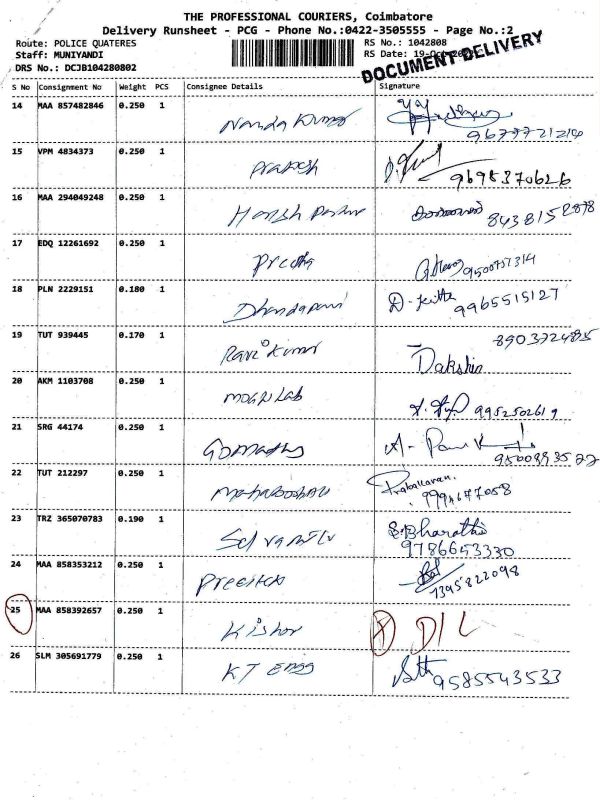 THE PROFESSIONAL COURIERS, Coimbatore
Delivery Runsheet - PCG - Phone No.:0422-3505555 - Page No.:2
Route: POLICE QUATERES RS No.: 1042808
Staff: MUNIYANDI RS Date: 19-Oct
DRS No.: DCJB104280802
DOCUMENT DELIVERY
S No Consignment No Weight PCS Consignee Details Signature
14 MAA 857482846 0.250 1 Nanda Kumar
15 VPM 4834373 0.250 1 Prakash 9698370626
16 MAA 294049248 0.250 1 Harish 8438152878
17 EDQ 12261692 0.250 1 Preetha 9500757314
18 PLN 2229151 0.180 1 Dhandapani D. 9965515127
19 TUT 939445 0.170 1 Ravi Kumar 8903724815
Dakshin
20 AKM 1103708 0.250 1 9952502619
21 SRG 44174 0.250 1 Gomathy A-
9500893522
22 TUT 212297 0.250 1 Prabakaran.
9994677058
23 TRZ 365070783 0.190 1 S. Bharathi
9786653330
24 MAA 858353212 0.250 1
7395822098
25 MAA 858392657 0.250 1 Kishor D/L
26 SLM 305691779 0.250 1 KT Engg 9585543533